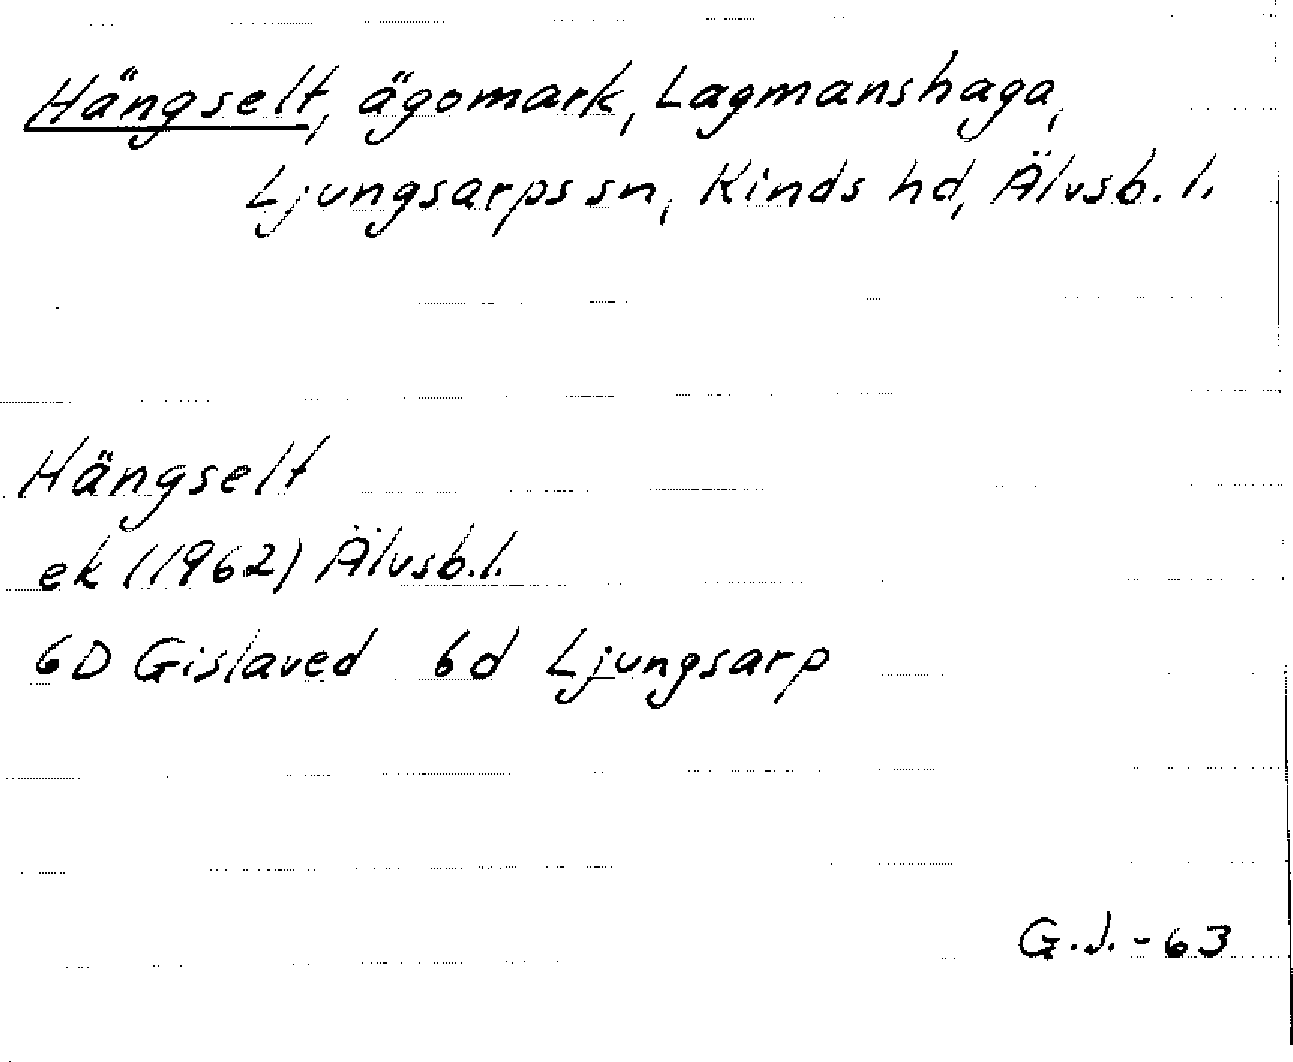 Hängselt, ägomark, Lagmanshaga,
Ljungsarps sn, Kinds hd, Älvsb. l.
Hängselt
ek (1962) Älvsb. l.
6D Gislaved 6d Ljungsarp
G.J. - 63